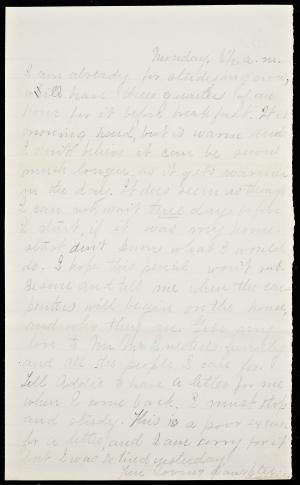 Monday, 6½ a.m.
I am all ready for studying now,
will have three quarters of an
hour for it before breakfast. It is
snowing hard, but is warm and
I don't believe it can be snow
much longer as it gets warmer
in the day. It does seem as though
I can not wait three days before
I start, if it was my home
start don't know what I would
do. I hope this pencil won't rub.
Be sure and tell me when the car-
penters will begin on the house,
and who they are. Give my
love to Mr. Mrs. family
and all the people I care for.
Tell Addie to have a letter for me
when I come back. I must stop
and study. This is a poor excuse
for a letter, and I am sorry for it
but I was so tired yesterday.
Your loving daughter,